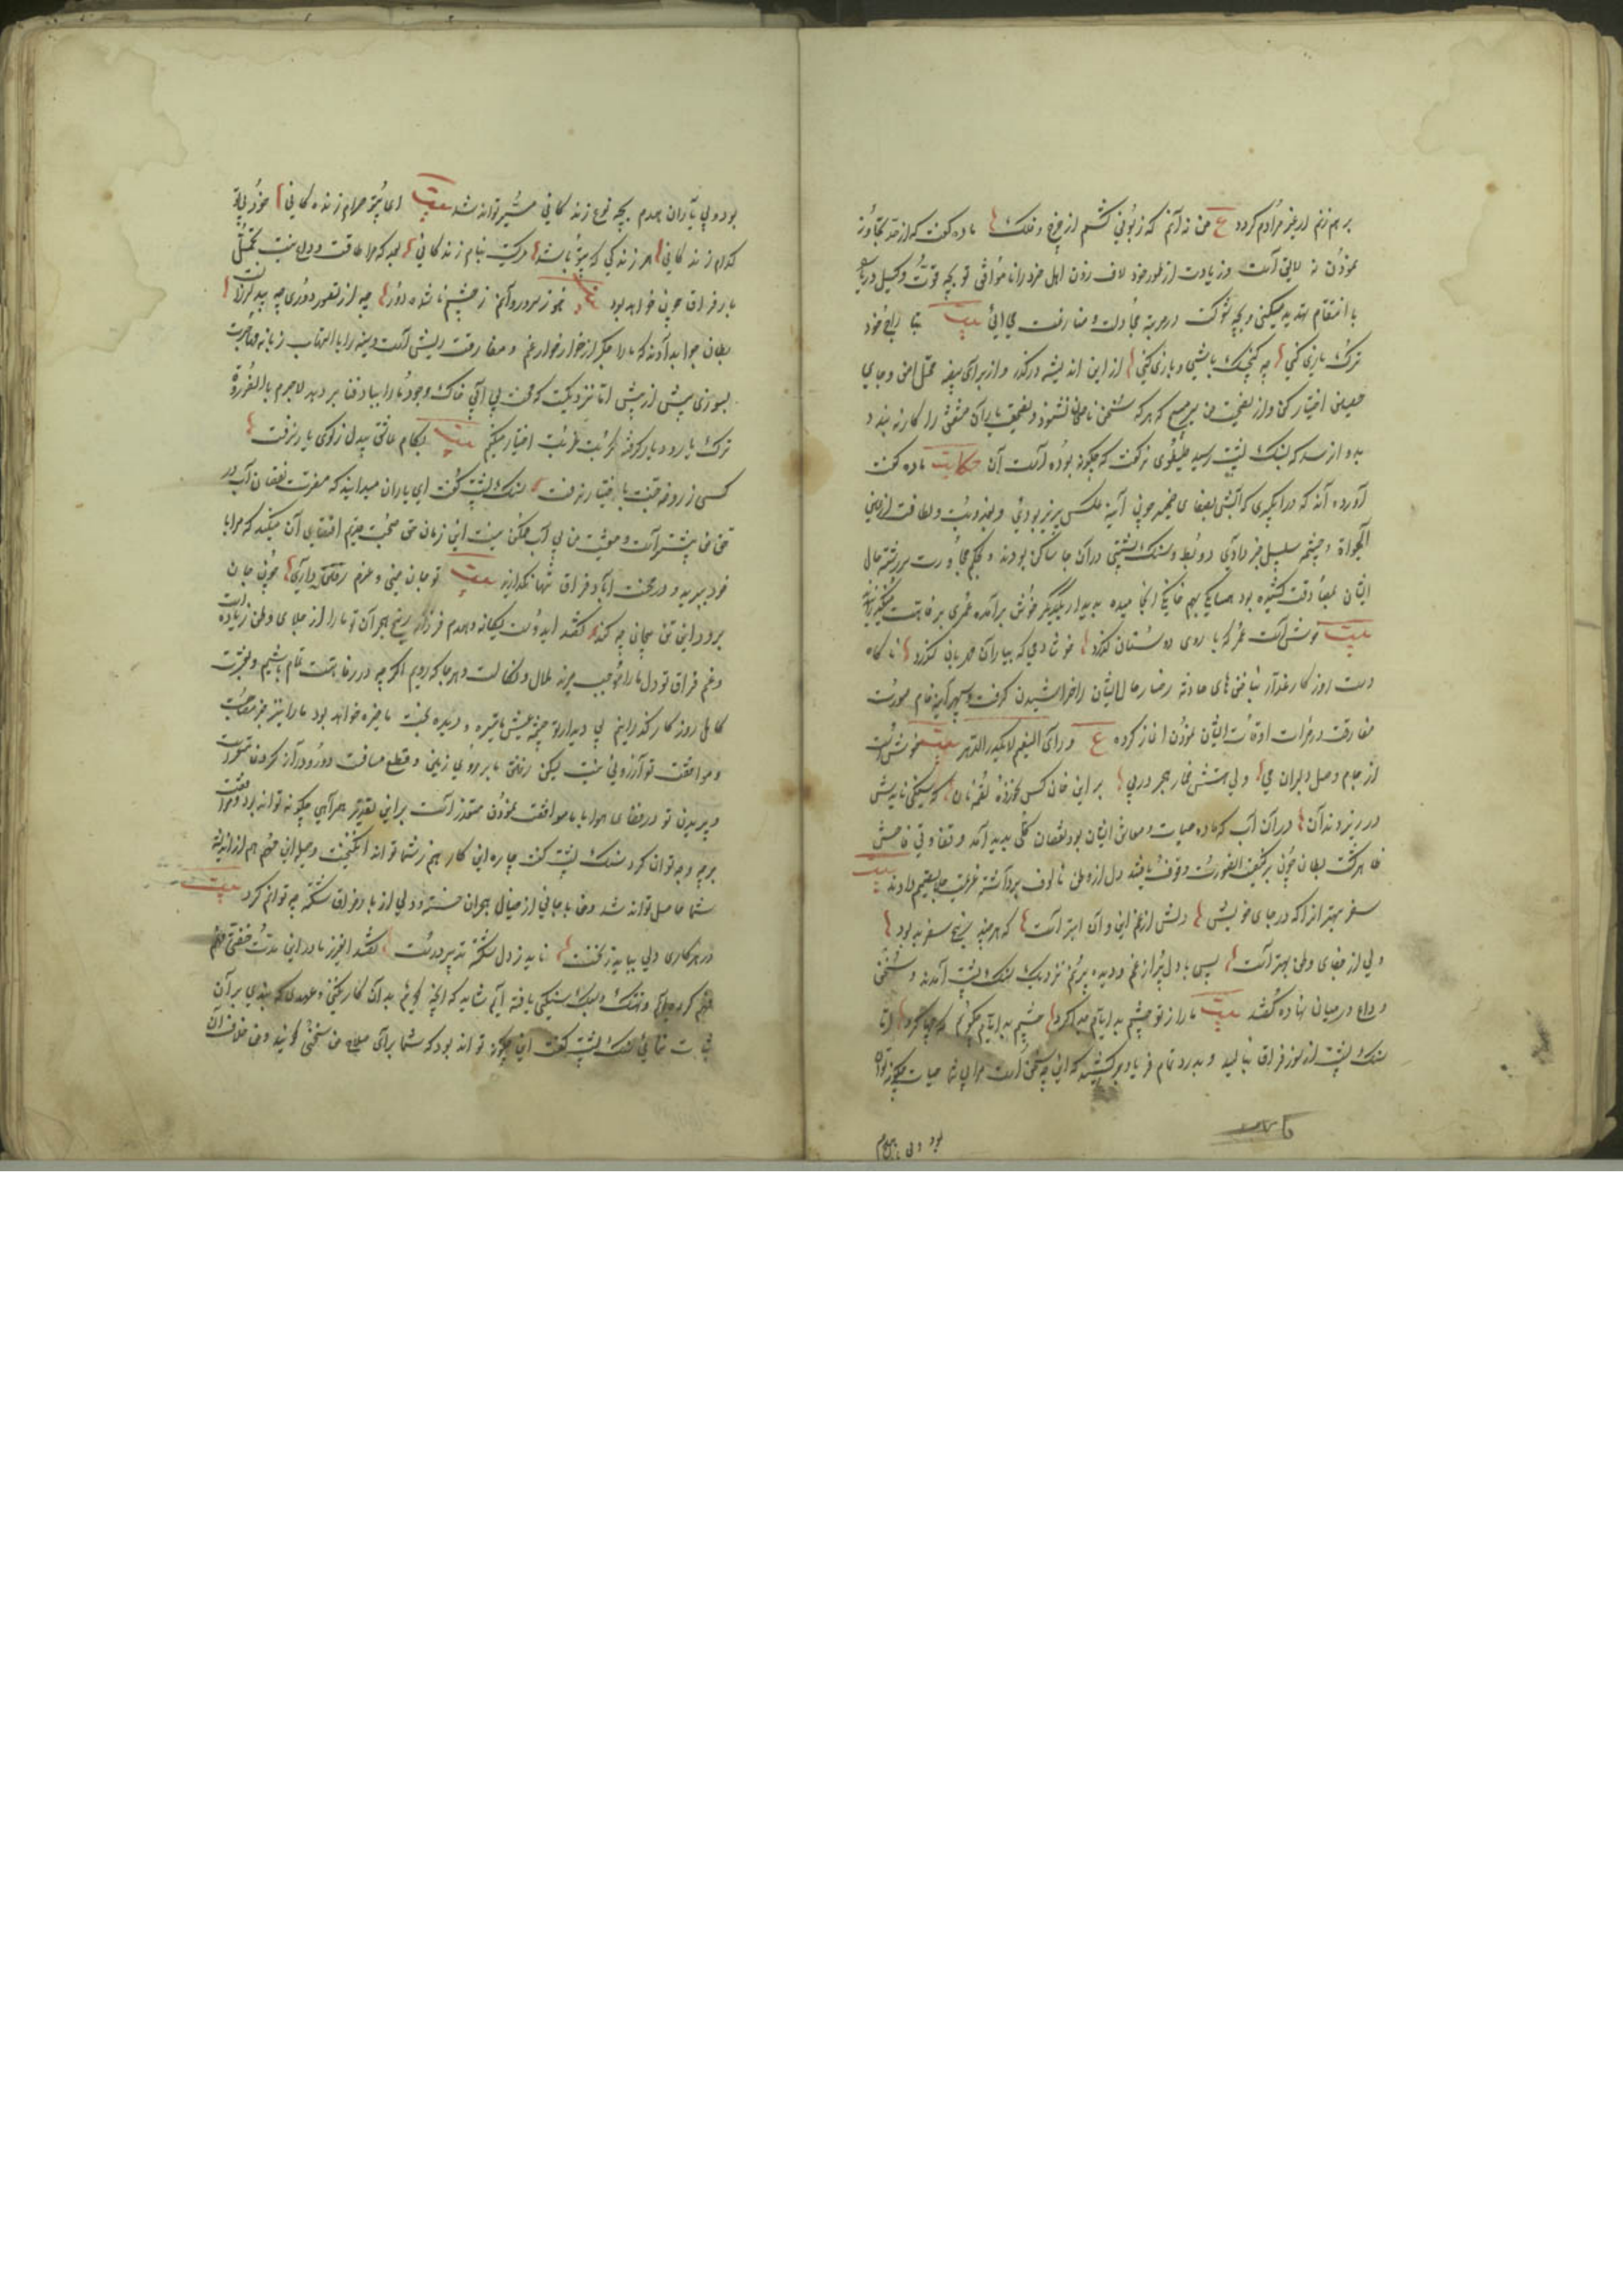 بر هم زنم ار غیر مرادم گردد ع من نه آنم که زبونی کشم از چرخ و فلک ماده گفت که از حد تجاوز
نمودن نه لایق است و زیادت از طور خود لاف زدن اهل خرد را نا موافق تو بچه قوت و کحیل دریا
با انتقام تهدید میکنی و بچه شوکت در مرتبه مجادلت و منازعت می آئی بیت بیا رای خود
ترک بازی کنی چه گنجشک باشی و بازی کنی از این اندیشه درگذر و از برای بیضه محل امن و جای
حصین اختیار کن و از نصیحت من سر مپیچ که هر که سخن ناصحان نشنود و نصیحت یاران مشفق را کار نه بندد
بدو آن رسد که بسنگ پشت رسید طیطوی نر گفت که چگونه بوده است آن حکایت ماده گفت
آورده اند که در آبگیری که آبش بصفای ضمیر چون آینه عکس پذیر بودی و بعذوبت و لطافت از عین
الحیوة و چشمه سلسبیل خبر دادی دو بط و سنگ پشتی در آن جا ساکن بودند و بحکم مجاورت سر رشته حال
ایشان بمصادقت کشیده بود همسایگی بهم خانگی انجامیده بدیدار یکدیگر خوش برآمده عمری برفاهیت میگذرانیدند
بیت خوش است عمر که با روی دوستان گذرد خوش دمی که بیاران مهربان گذرد ناگاه
دست روزگار غدار بناخن های حادثه رخسار حال ایشان را خراشیدن گرفت و سپهر آینه فام صورت
مفارقت در مرآت اوقات ایشان نمودن آغاز کرد ع و رأی النعیم لایکدر الدهر بیت خوش است
از جام وصل دلبران می ولی هستش خمار هجر در پی بر این خوان کس نخورده لقمه نان که سنگی نایدش
در زیر دندان در آن آب که ماده حیات و معاش ایشان بود نقصان کلی پدید آمد و تفاوتی فاحش
ظاهر گشت بطان چون بر کیفیت الصورت وقوف یافتند دل از وطن مالوف برداشته عزیمت جلا تصمیم دادند بیت
سفر بهتر آنرا که در جای خویش دلش از غم این و آن ابتر است که هر چند رنج سفر بد بود
ولی از جفای وطن بهتر است پس با دل پر از غم و دیده پر نم نزدیک سنگ پشت آمدند و سخن
وداع در میان نهاده گفتند بیت ما را ز تو چشم بد ایام جدا کرد چشم بد ایام چگویم که چها کرد اما
سنگ پشت از سوز فراق بنالید و بدرد تمام فریاد برکشید که این چه سخن است مرا بی شما حیات چگونه تواند
بود ولی یاران همدم
بود و بی یاران همدم بچه نوع زندگانی میسر تواند شد بیت ای بیتو حرام زندگانی خود بی تو
کدام زندگانی هر زندگی که بیتو باشد مرگیست بنام زندگانی بعد که مرا طاقت وداع نیست تحمل
بار فراق چون خواهد بود بیت هنوز سرو روانم ز چشم ناشده دور دل از تصور دوری چه بید لرزانست
بطان جواب دادند که ما را جگر از خوارخوار غم و مفارقت ریش است و سینه را با التهاب زبانه مهاجرت
سوزی بیش از پیش اما نزدیکست که محنت بی آبی خاک وجود ما را بباد فنا بر دهد لاجرم بالضرورة
ترک یار و دیار گرفته کربت غربت اختیار میکنیم بیت بکام عاشق بیدل ز کوی یار نرفت
کسی ز روضه جنت باختیار نرفت سنگ پشت گفت ای یاران میدانید که مضرت نقصان آب در
حق من بیشتر است و معیشت من بی آب ممکن نیست این زمان حق صحبت قدیم اقتضای آن میکند که مرا با
خود ببرید و در محنت آباد فراق تنها نگذارید بیت تو جان منی و عزم رفتن داری چون جان
برود این تن بیجان چه کند گفتند ای دوست یگانه و همدم فرزانه رنج هجران تو ما را از جلای وطن زیاده است
و غم فراق تو دل ما را موجب مزید ملال و کلالت و هر جا که رویم اگر چه در رفاهیت تمام باشیم و بعشرت
کامل روزگار گذرانیم بی دیدار تو چشمه عیش ما تیره و دیده بخت ما خیره خواهد بود ما را نیز بجز مصاحبت
و موافقت تو آرزوئی نیست لیکن رفتن ما بر روی زمین و قطع مسافت دور و دراز کردن متعذر است
و پریدن تو در فضای هوا با ما موافقت نمودن متعذر است بر این تقدیر همراهی چگونه تواند بود و موافقت
بر چه وجه توان کرد سنگ پشت گفت چاره این کار هم ز شما تواند انگیخت و حیله این مهم هم از اندیشه
شما حاصل تواند شد و من با جانی از خیال هجران خسته و دلی از بار فراق شکسته چه توانم کرد بیت
در هر کاری دلی بباید ز نخست ناید ز دل شکسته تدبیر درست گفتند ای عزیز ما در این مدت خفتی فهم
فهم کرده ایم و تهتک و سبک سنگی یافته ایم شاید که آنچه گوئیم بدان کار نکنی و عهدی که بندی بر آن
ثبات ننمائی سنگ پشت گفت این چگونه تواند بود که شما برای صلاح من سخنی گوئید و من خلاف آن